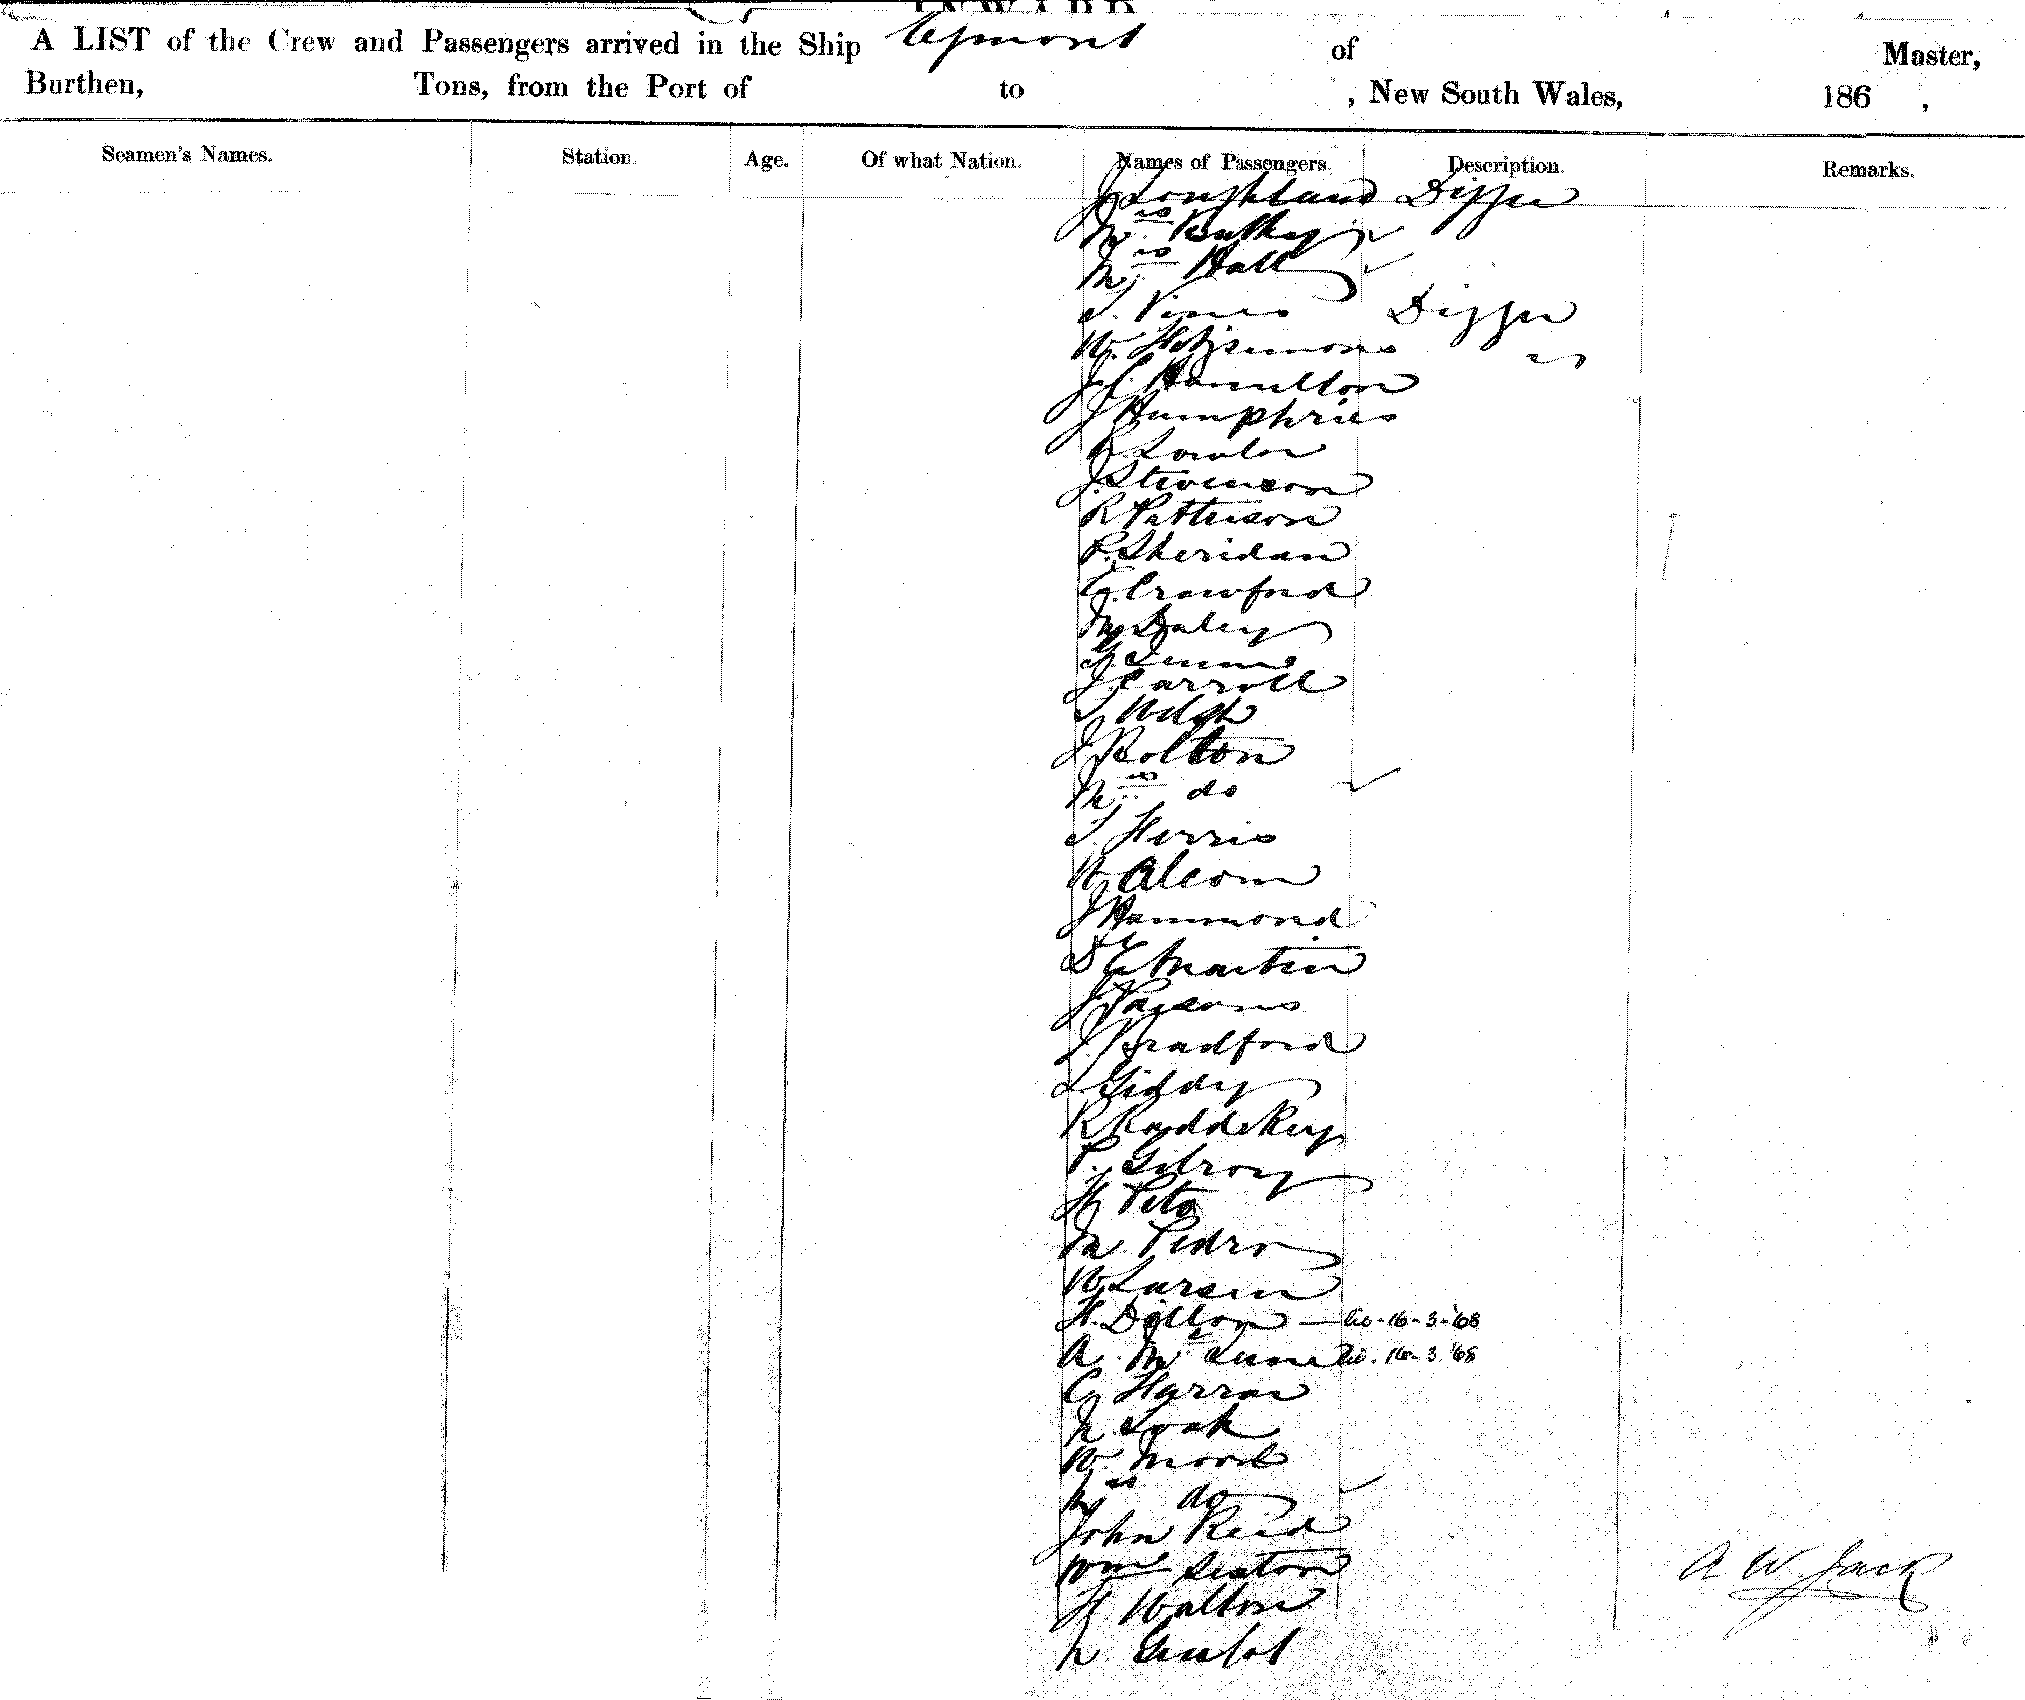 INWARD
A LIST of the Crew and Passengers arrived in the Ship Egmont of Master,
Burthen, Tons, from the Port of to , New South Wales, 186 ,
Seamen's Names. Station. Age. Of what Nation. Names of Passengers. Description. Remarks.
J Loughland Digger
Mrs
Mrs Hall
T. Vines Digger
W. Fitzsimons "
J. C. Hamilton
J Humphries
R Lawler
J. Stevenson
R Patterson
P. Sheridan
G. Crawford
M Daley
J. Carroll
T Welsh
J Bolton
Mrs do
T. Harris
W Alcorn
J Hammond
D C Martin
J Parsons
J. Bradford
L Giddy
R
P. Gilroy
H Peto
M Pedro
W Larsen
H. Dillon — lic - 16 - 3 - '68
A. Mc lic. 16 - 3 '68
G
N
W
Mrs do
John Reid
Wm Seaton
H Walton
N
A W Jack